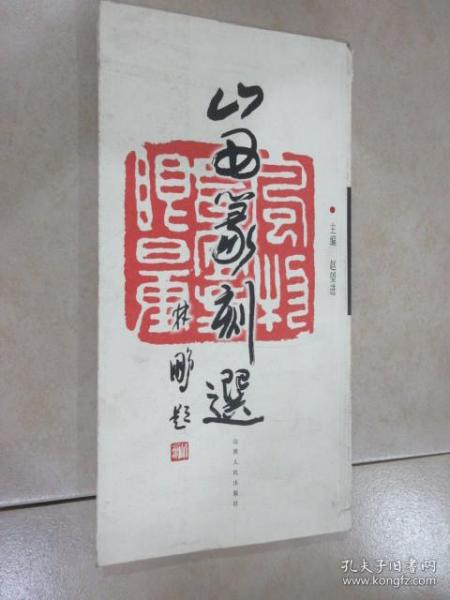 山西篆刻選
林鹏题
主编 赵望进
山西人民出版社
孔夫子旧书网
www.kongfz.com